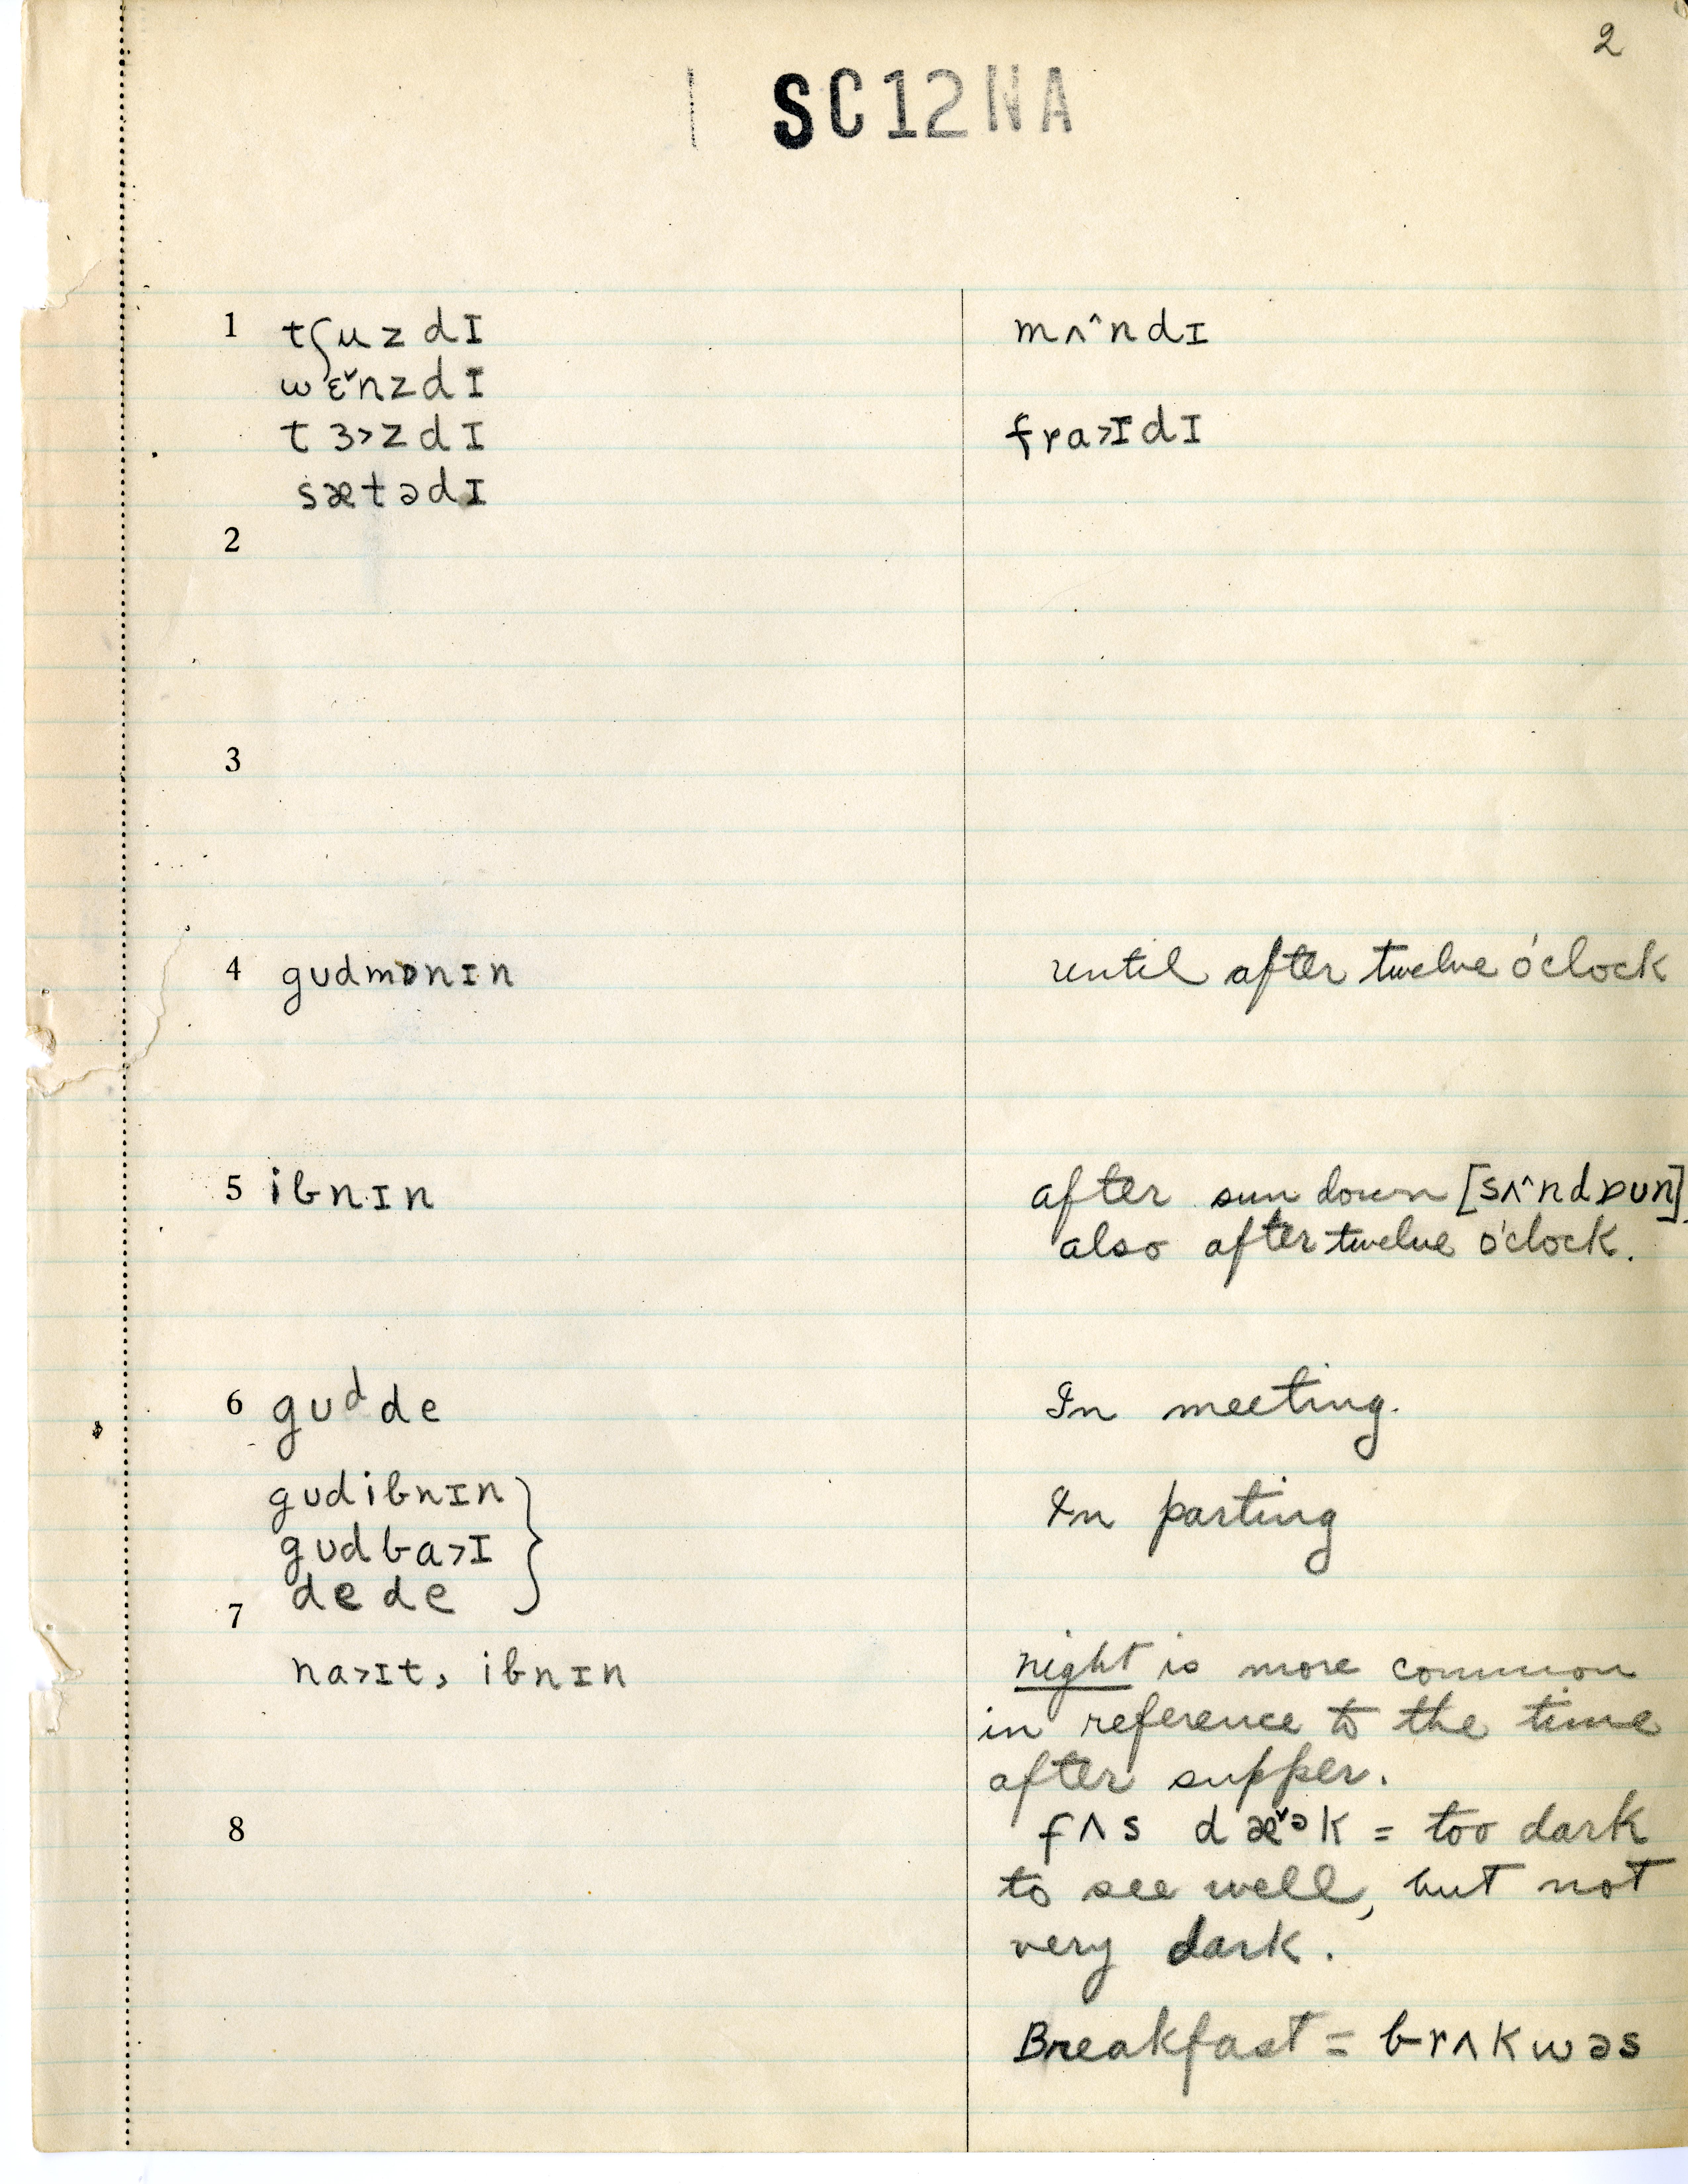 2
SC12NA
1 tʃuzdɪ mʌ^ndɪ
wɛ˅nzdɪ
tɜ>zdɪ fra>ɪdɪ
sætədɪ
2
3
4 gʊdmɒnɪn until after twelve o'clock
5 iƄnɪn after sun down [sʌ^ndɒʊn]
also after twelve o'clock.
6 gʊᵈde In meeting.
gʊdiƄnɪn In parting
gʊdƄa>ɪ
dede
7
na>ɪt, iƄnɪn night is more common
in reference to the time
after supper.
8 fʌs dæ˅ᵊk = too dark
to see well, but not
very dark.
Breakfast = Ƅrʌkwəs